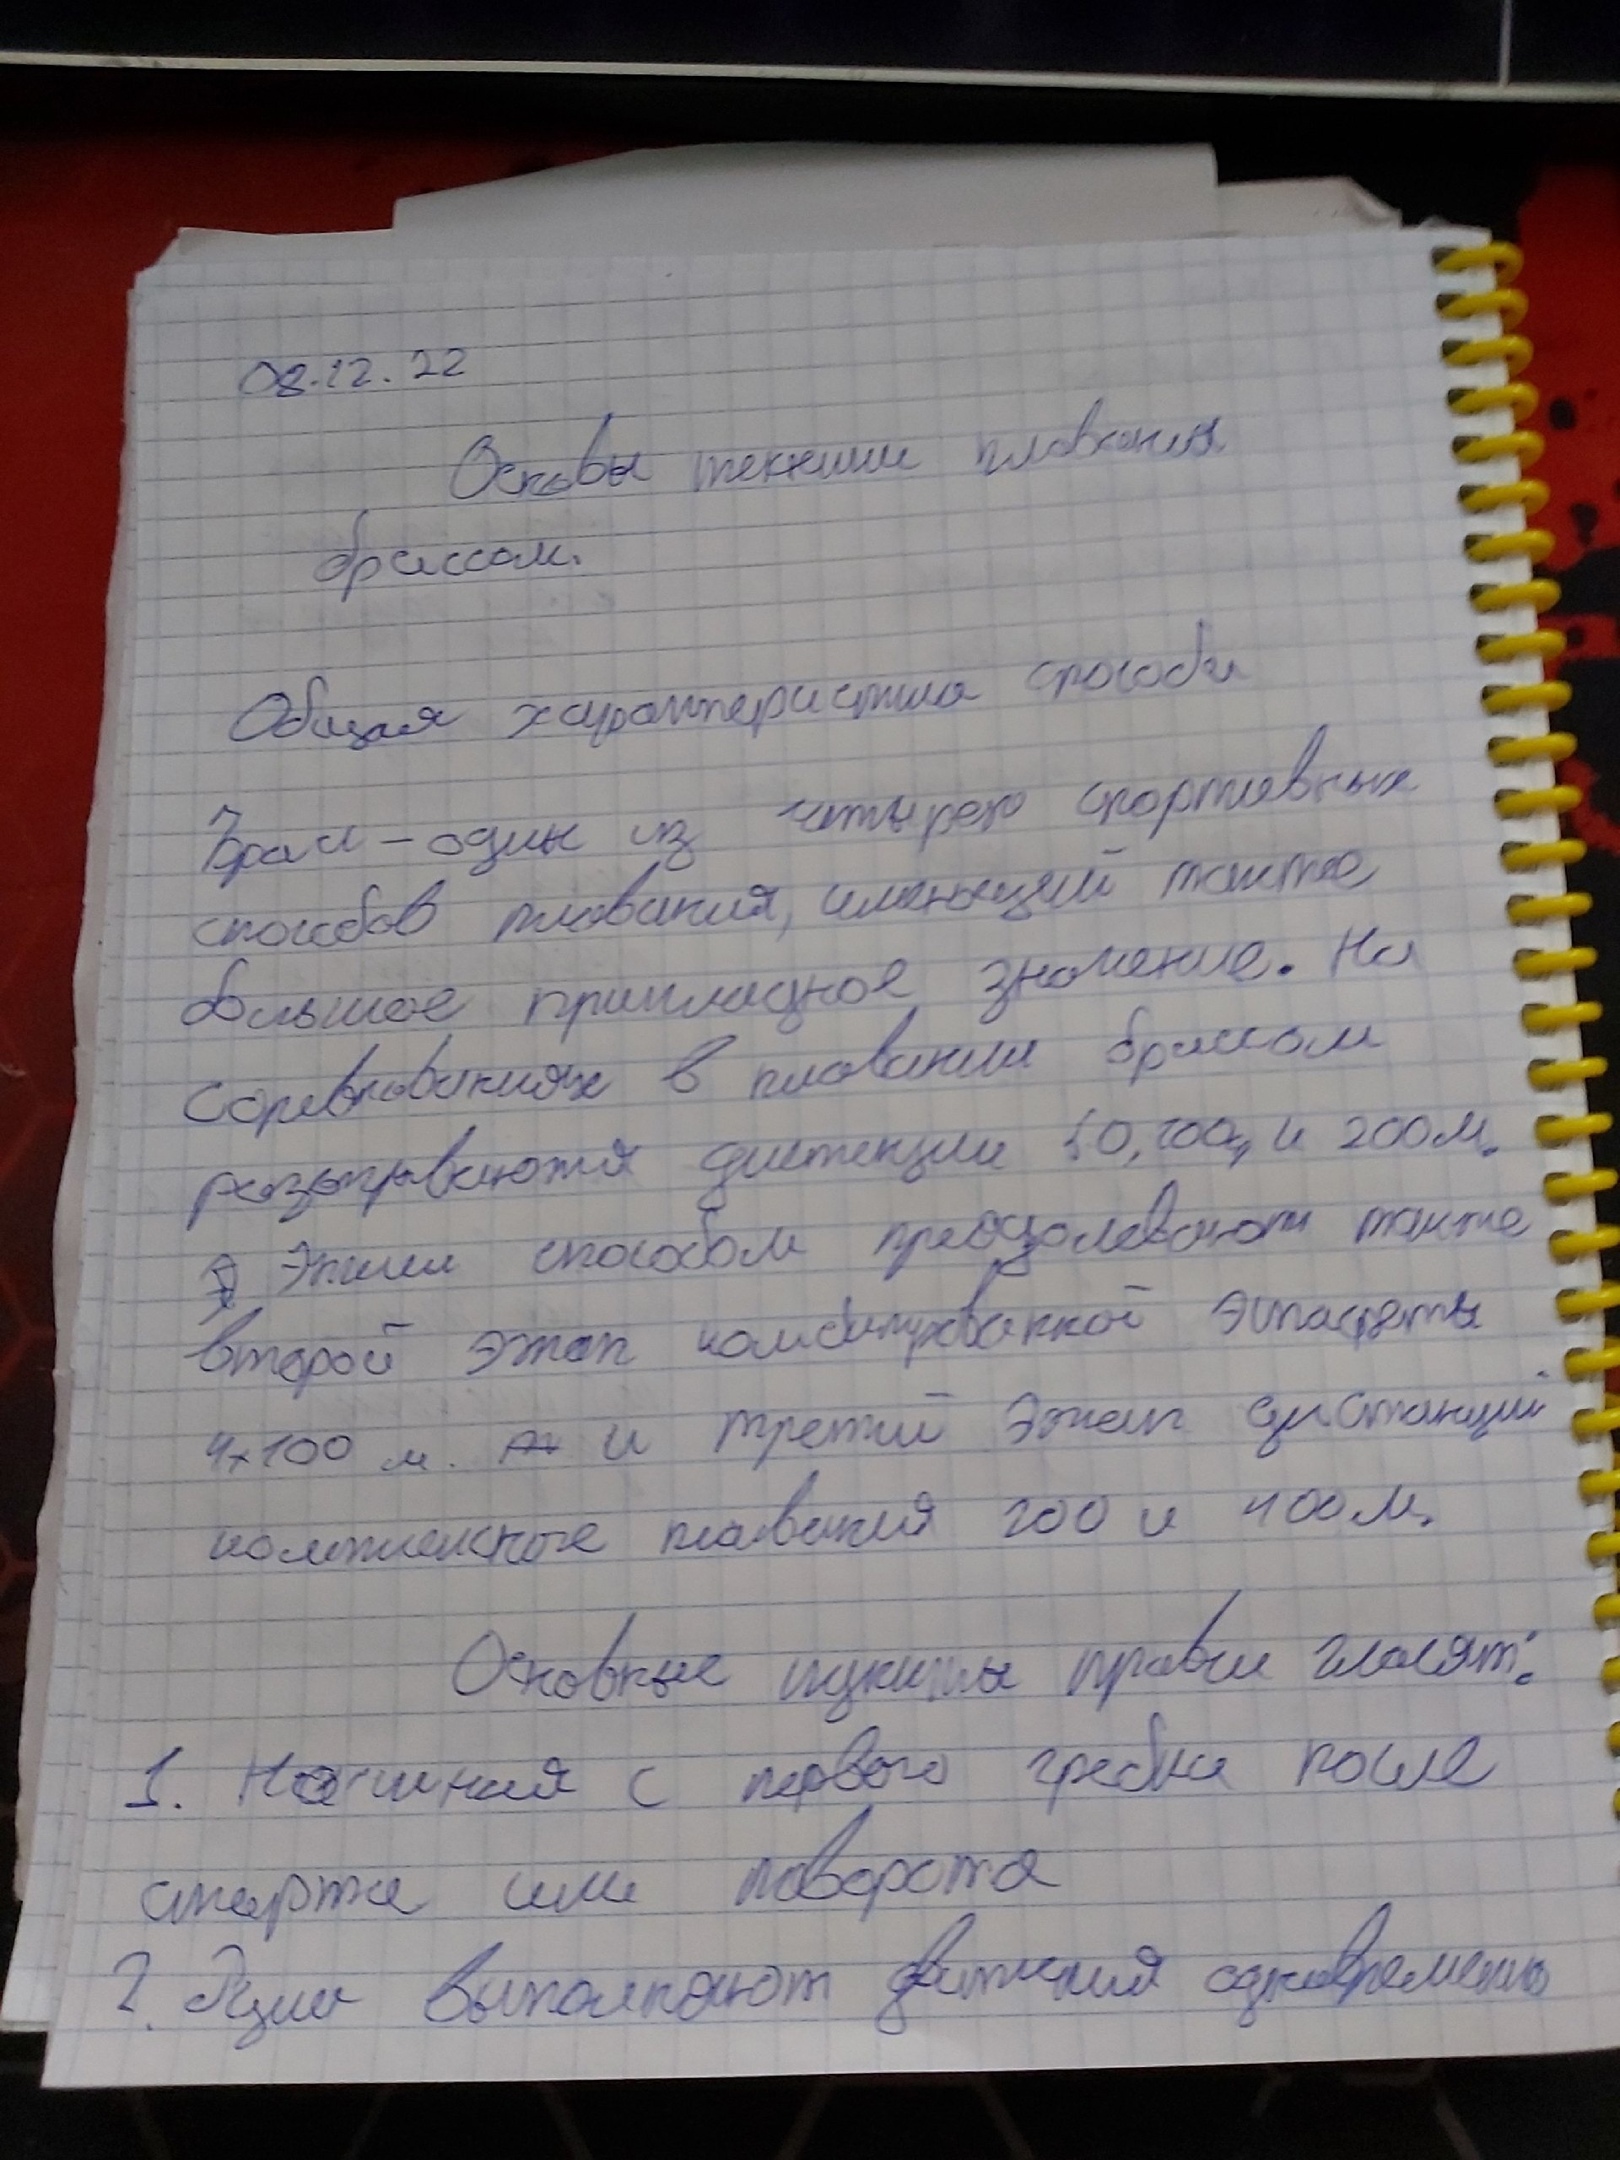 08.12.22
Основы техники плавания
брассом.
Общая характеристика способа
Брасс – один из четырех спортивных
способов плавания, имеющий также
большое прикладное значение. На
соревнованиях в плавании брассом
разыгрываются дистанции 50, 100, и 200м.
Этим способом преодолевают также
второй этап комбинированной эстафеты
4х100 м. и третий этап дистанций
комплексное плавания 200 и 400м.
Основные пункты правил гласят:
1. Начиная с первого гребка после
старта или поворота
2. Руки выполняют движения одновременно